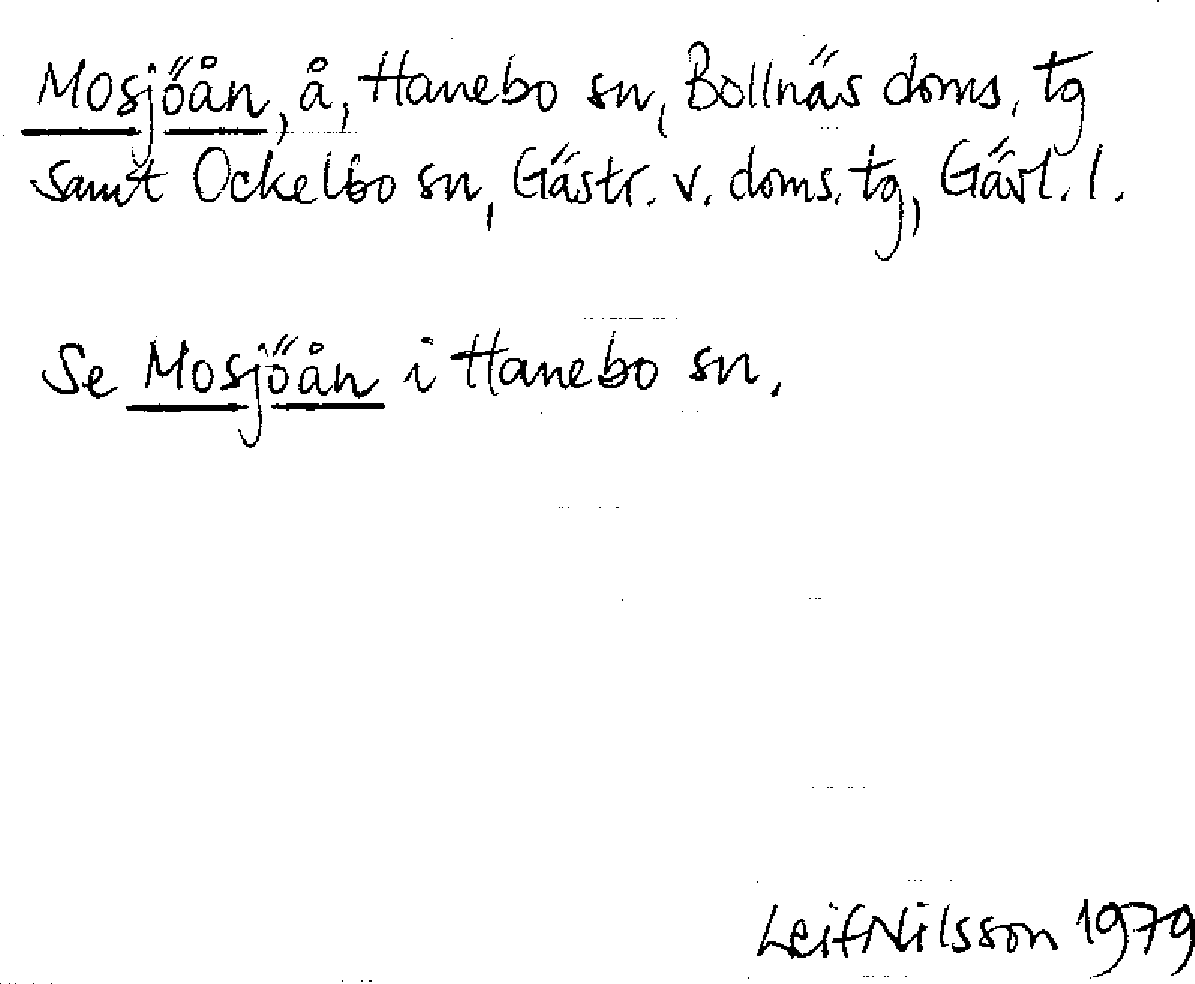 Mosjöån, å, Hanebo sn, Bollnäs doms. tg
samt Ockelbo sn, Gästr. v. doms. tg, Gävl. l.
Se Mosjöån i Hanebo sn.
Leif Nilsson 1979